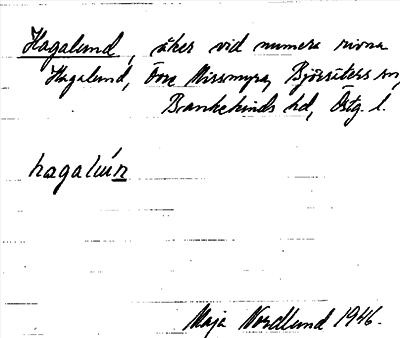 Hagalund, åker vid numera rivna
Hagalund, Övre Missmyra, Bjärsäters sn,
Bankekinds hd, Östg. l.
hagalún
Maja Nordlund 1946.